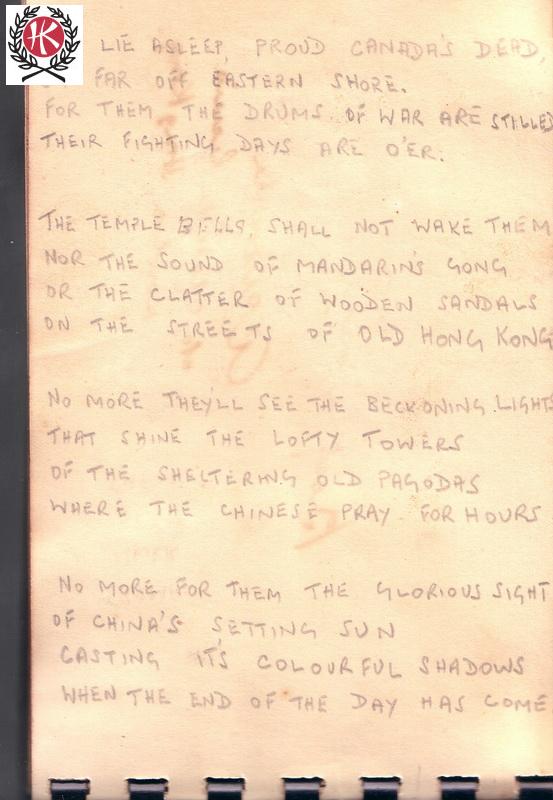 HK
LIE ASLEEP, PROUD CANADA'S DEAD,
FAR OFF EASTERN SHORE.
FOR THEM THE DRUMS OF WAR ARE STILLED
THEIR FIGHTING DAYS ARE O'ER.
THE TEMPLE BELLS, SHALL NOT WAKE THEM
NOR THE SOUND OF MANDARIN'S GONG
OR THE CLATTER OF WOODEN SANDALS
ON THE STREETS OF OLD HONG KONG
NO MORE THEY'LL SEE THE BECKONING LIGHTS
THAT SHINE THE LOFTY TOWERS
OF THE SHELTERING OLD PAGODAS
WHERE THE CHINESE PRAY FOR HOURS
NO MORE FOR THEM THE GLORIOUS SIGHT
OF CHINA'S SETTING SUN
CASTING IT'S COLOURFUL SHADOWS
WHEN THE END OF THE DAY HAS COME